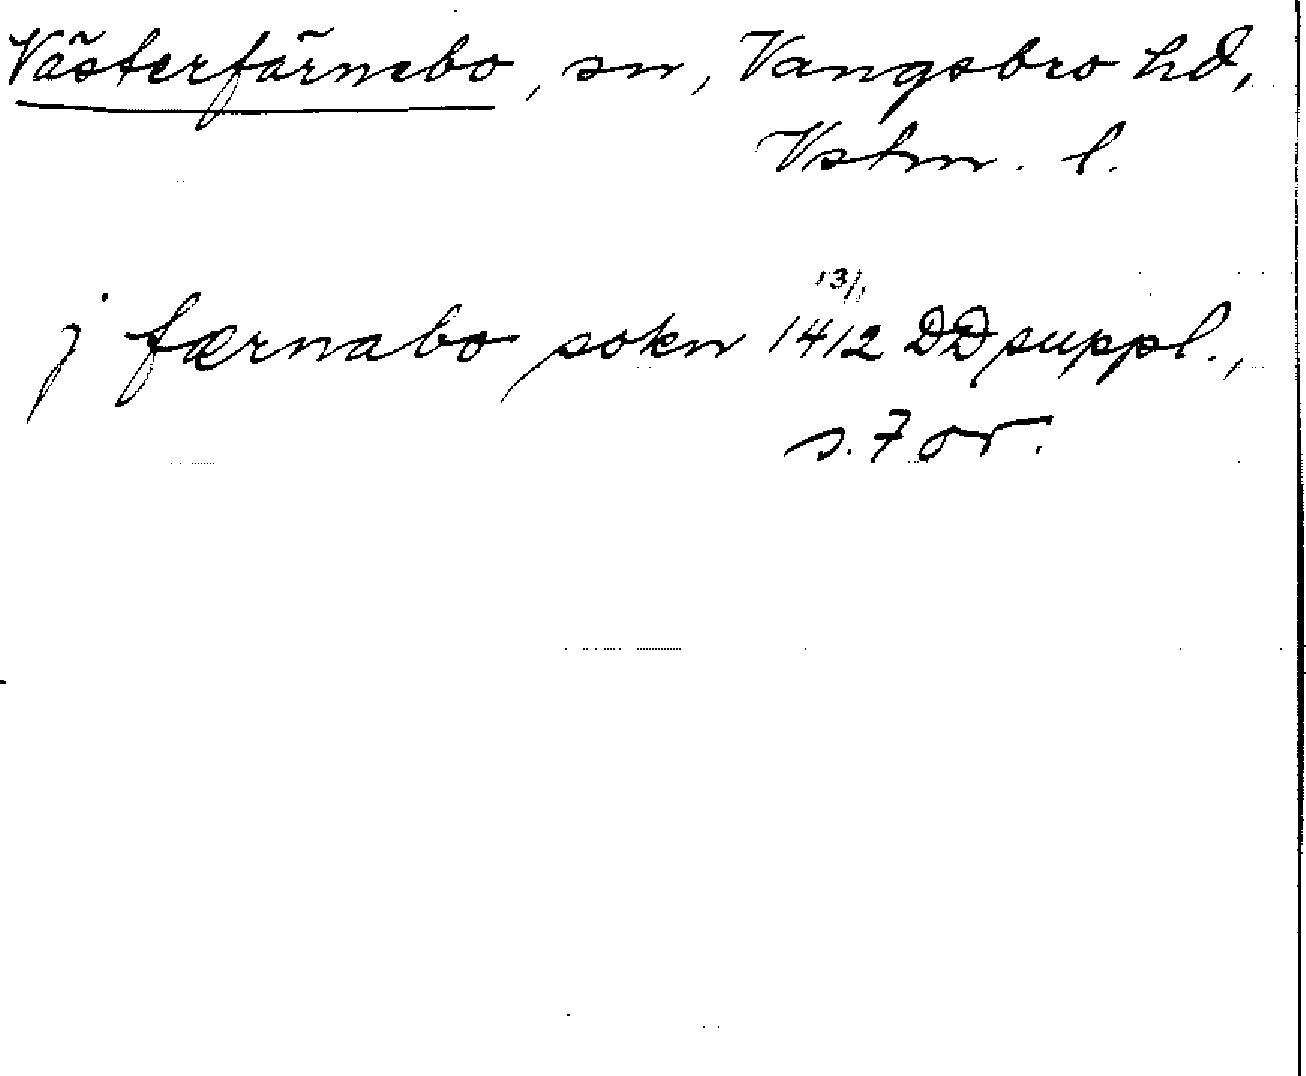 Västerfärnebo, sn, Vangsbro hd,
Vstm. l.
j færnabo sokn 13/1 1412 DD suppl.,
s. 7 or.